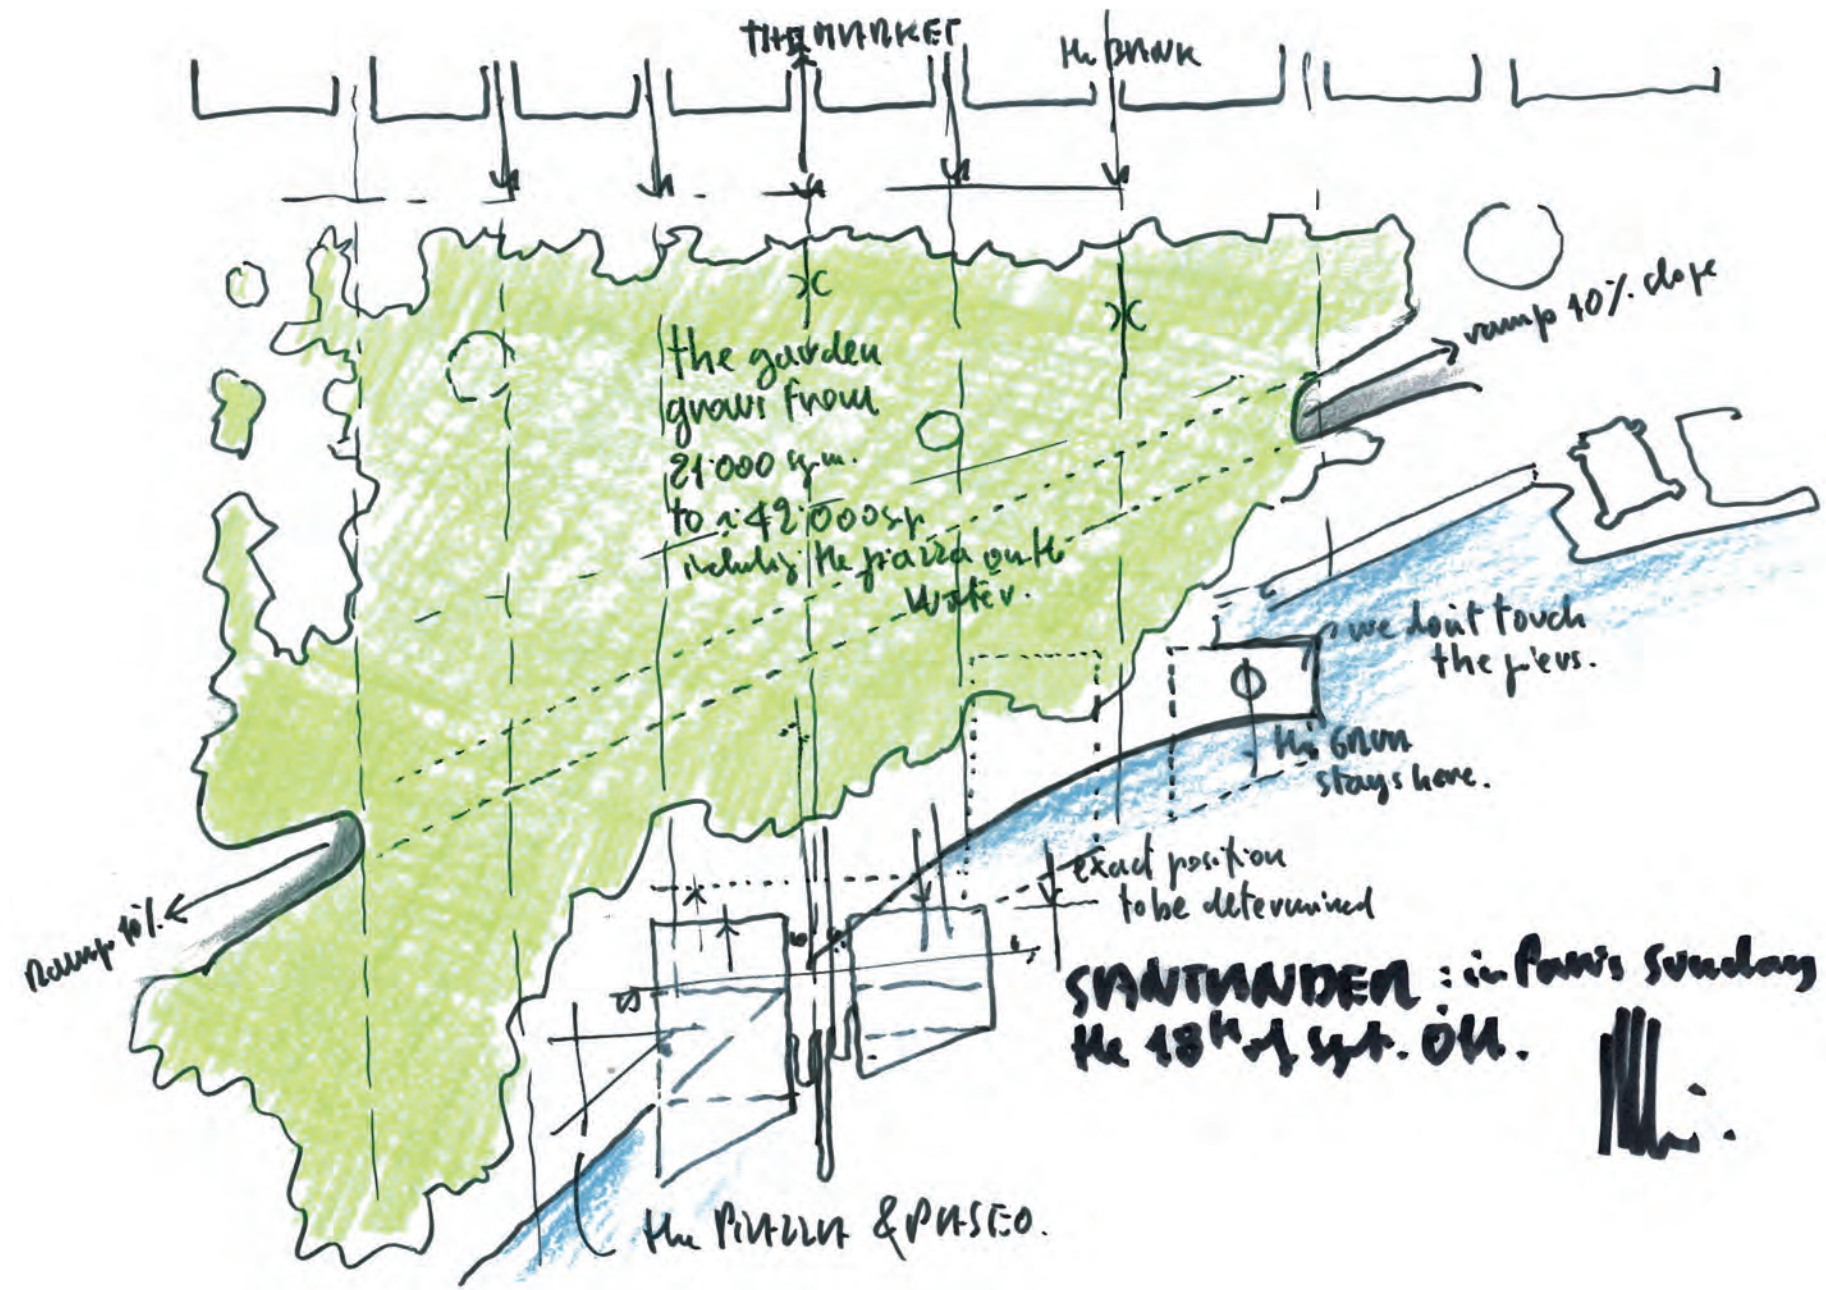 THE MARKET
the BANK
ramp 10% slope
the garden
grows from
21.000 sq.m.
to 42.000 sq
including the piazza on the
water.
we don't touch
the piers.
the GRUA
stays here.
exact position
to be determined
Ramp 10%
SANTANDER : in Paris Sunday
the 18th of sept. 011.
the PIAZZA & PASEO.